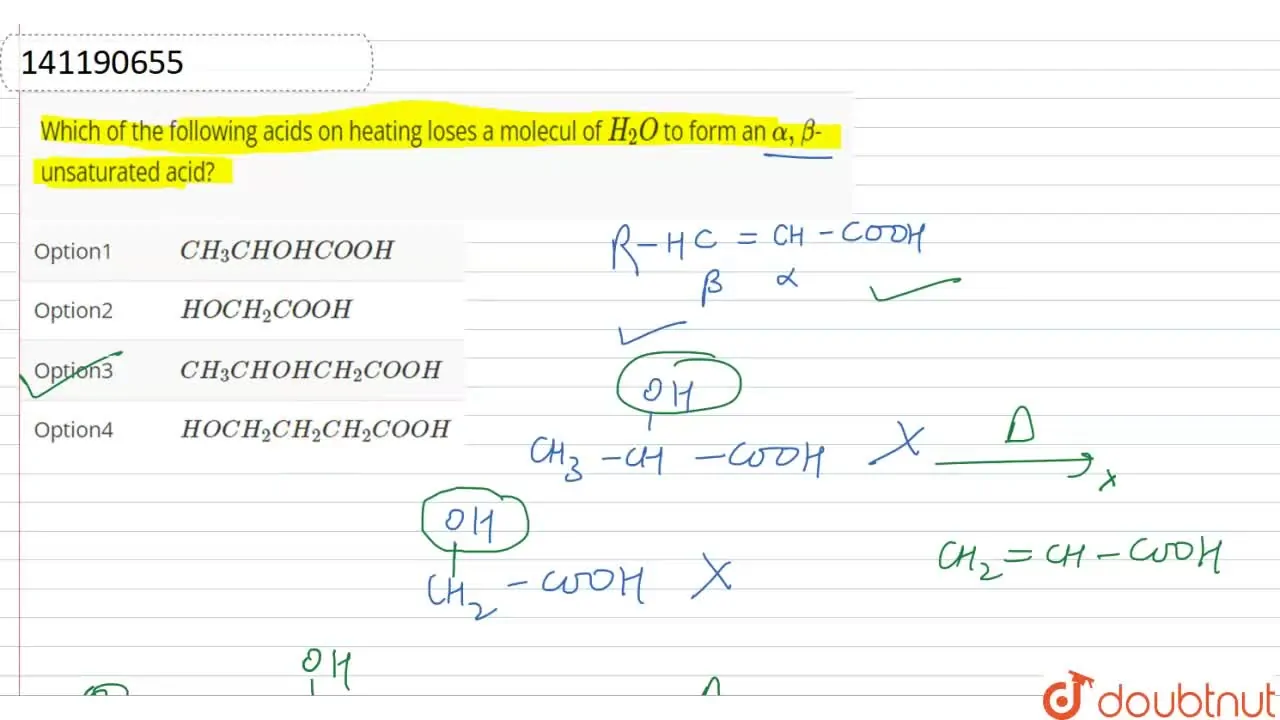 141190655
Which of the following acids on heating loses a molecul of H₂O to form an α, β-
unsaturated acid?
R-HC = CH-COOH
β α
Option1 CH₃CHOHCOOH
Option2 HOCH₂COOH
Option3 CH₃CHOHCH₂COOH
Option4 HOCH₂CH₂CH₂COOH
OH
CH₃-CH-COOH X Δ x
OH
CH₂-COOH X
CH₂=CH-COOH
OH
doubtnut